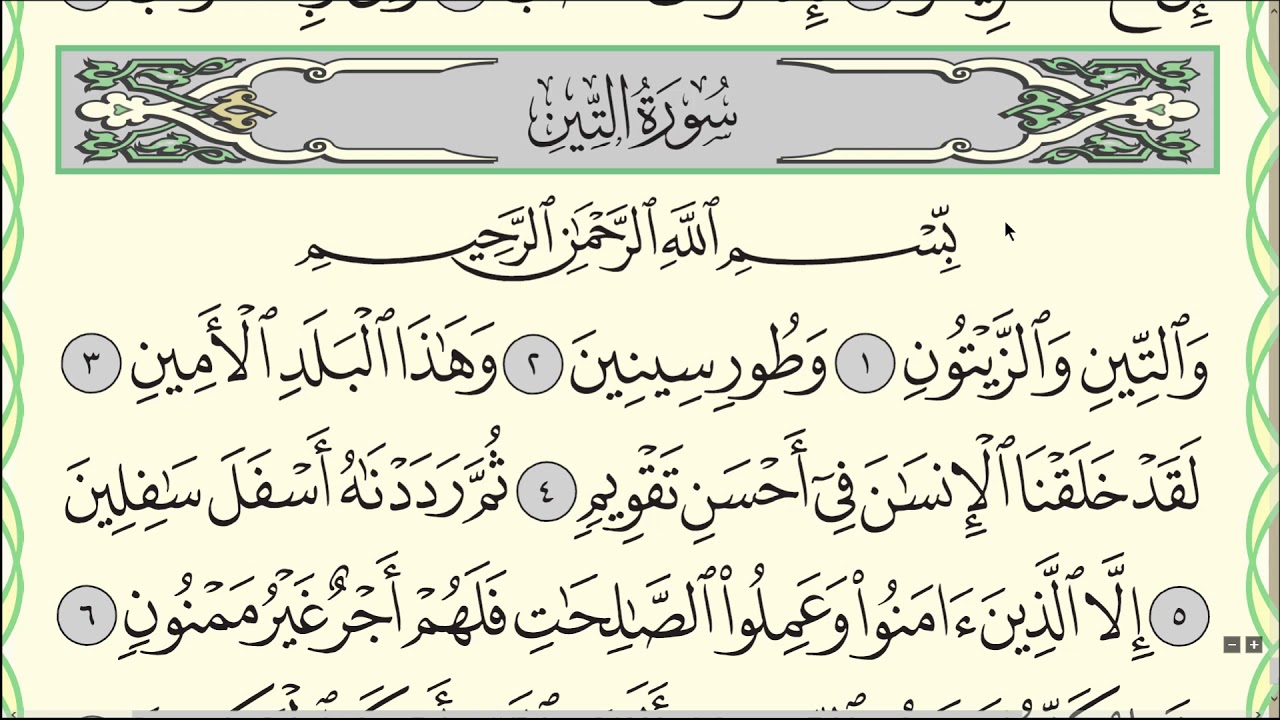 سُورَةُ التِّينِ
بِسْمِ ٱللَّهِ ٱلرَّحْمَٰنِ ٱلرَّحِيمِ
وَٱلتِّينِ وَٱلزَّيْتُونِ ١ وَطُورِ سِينِينَ ٢ وَهَٰذَا ٱلْبَلَدِ ٱلْأَمِينِ ٣
لَقَدْ خَلَقْنَا ٱلْإِنسَٰنَ فِىٓ أَحْسَنِ تَقْوِيمٍ ٤ ثُمَّ رَدَدْنَٰهُ أَسْفَلَ سَٰفِلِينَ
٥ إِلَّا ٱلَّذِينَ ءَامَنُوا۟ وَعَمِلُوا۟ ٱلصَّٰلِحَٰتِ فَلَهُمْ أَجْرٌ غَيْرُ مَمْنُونٍ ٦